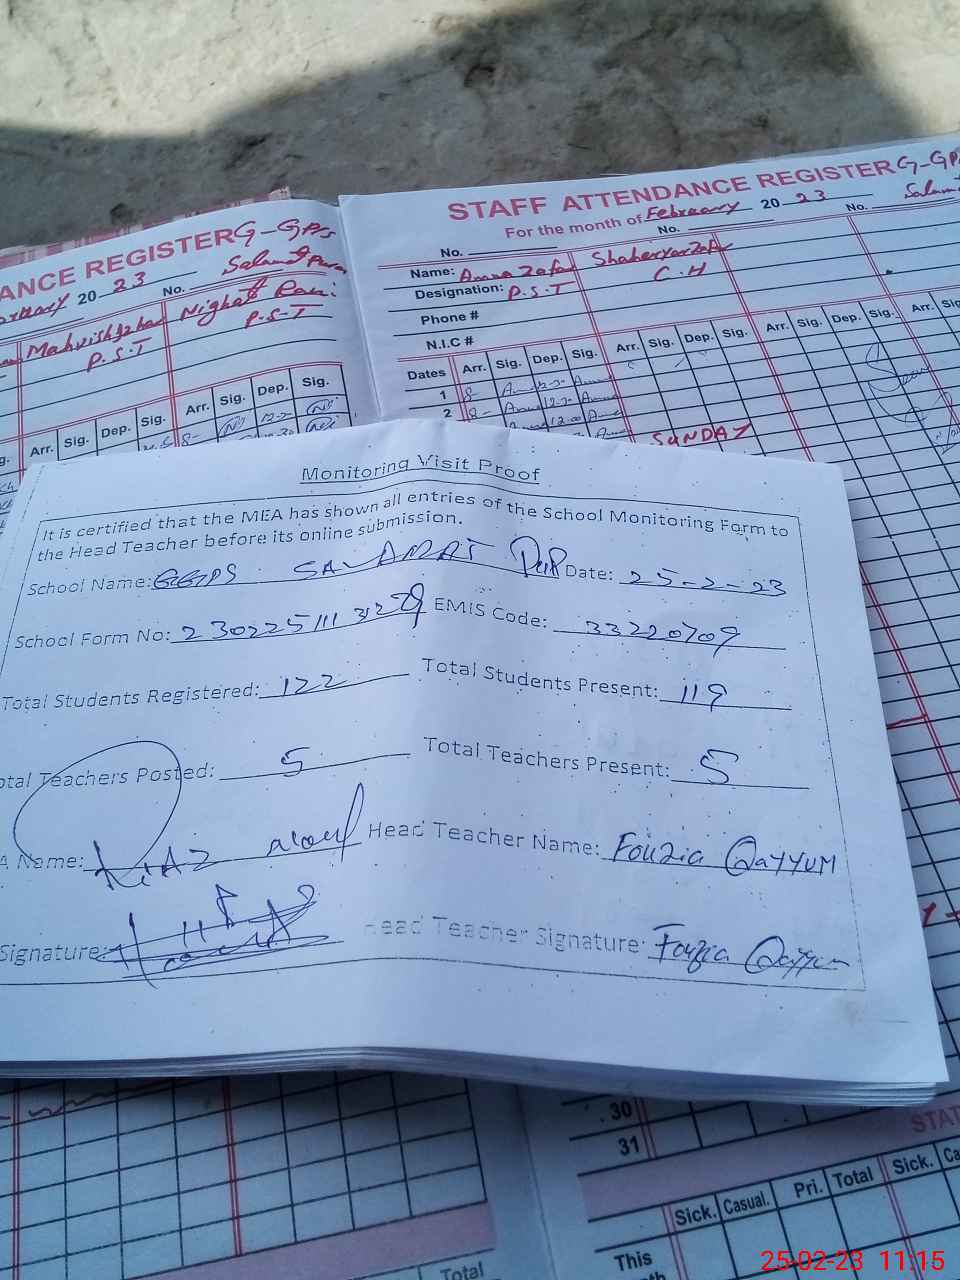 STAFF ATTENDANCE REGISTER G-GPS
For the month of February 20 23 No. Salamat
No. No.
Name: Amna Zafar Shaheryar Zafar
Designation: P.S.T C.H
Phone #
N.I.C #
Dates Arr. Sig. Dep. Sig. Arr. Sig. Dep. Sig. Arr. Sig. Dep. Sig. Arr. Sig.
1 8-
2 8-
SUNDAY
ANCE REGISTER G-GPS
20 23 No. Salamat Pura
Mahvish Nighat Rani
P.S.T P.S.T
Arr. Sig. Dep. Sig. Arr. Sig. Dep. Sig.
Monitoring Visit Proof
It is certified that the MEA has shown all entries of the School Monitoring Form to
the Head Teacher before its online submission.
School Name: GGPS SALAMAT PUR Date: 25-2-23
School Form No: EMIS Code: 33220709
Total Students Registered: 122 Total Students Present: 119
otal Teachers Posted: 5 Total Teachers Present: 5
A Name: Head Teacher Name: Fouzia Qayyum
Signature: Head Teacher Signature: Fouzia Qayyum
30
31
STAF
Sick. Casual. Pri. Total Sick. Ca
This
Total
25-02-23 11:15